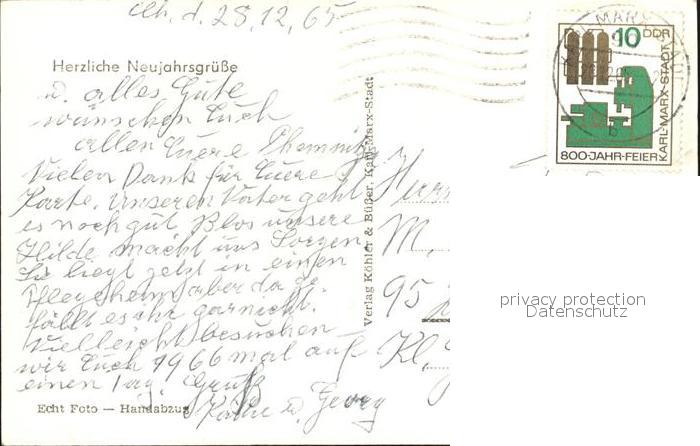 Ch. d. 28.12.65
Herzliche Neujahrsgrüße
u. alles Gute
wünschen Euch
allen Euere Chemnitzer
Vielen Dank für Euere
Karte. Unseren Vater geht
es noch gut. Blos unsere
Hilde macht uns Sorgen
Sie liegt jetzt in einem
Pflegeheim aber da ge-
fällt es ihr garnicht.
Vielleicht besuchen
wir Euch 1966 mal auf
einen Tag. Gruß
u. Georg
Echt Foto — Handabzug
Verlag Köhler & Büßer, Karl-Marx-Stadt
Herrn
M.
95
Kl.
10 DDR
800-JAHR-FEIER KARL-MARX-STADT
privacy protection
Datenschutz